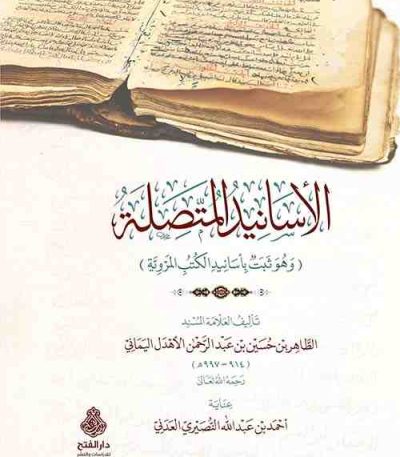 الأسانيد المتّصلة
(وهو ثبت بأسانيد الكتب المروية)
تأليف العلامة السيد
الطاهر بن حسين بن عبد الرحمن الأهدل اليماني
(٩١٤-٩٩٧هـ)
رحمه الله تعالى
عناية
أحمد بن عبد الله التصيري العدني
دار الفتح
للدراسات والنشر